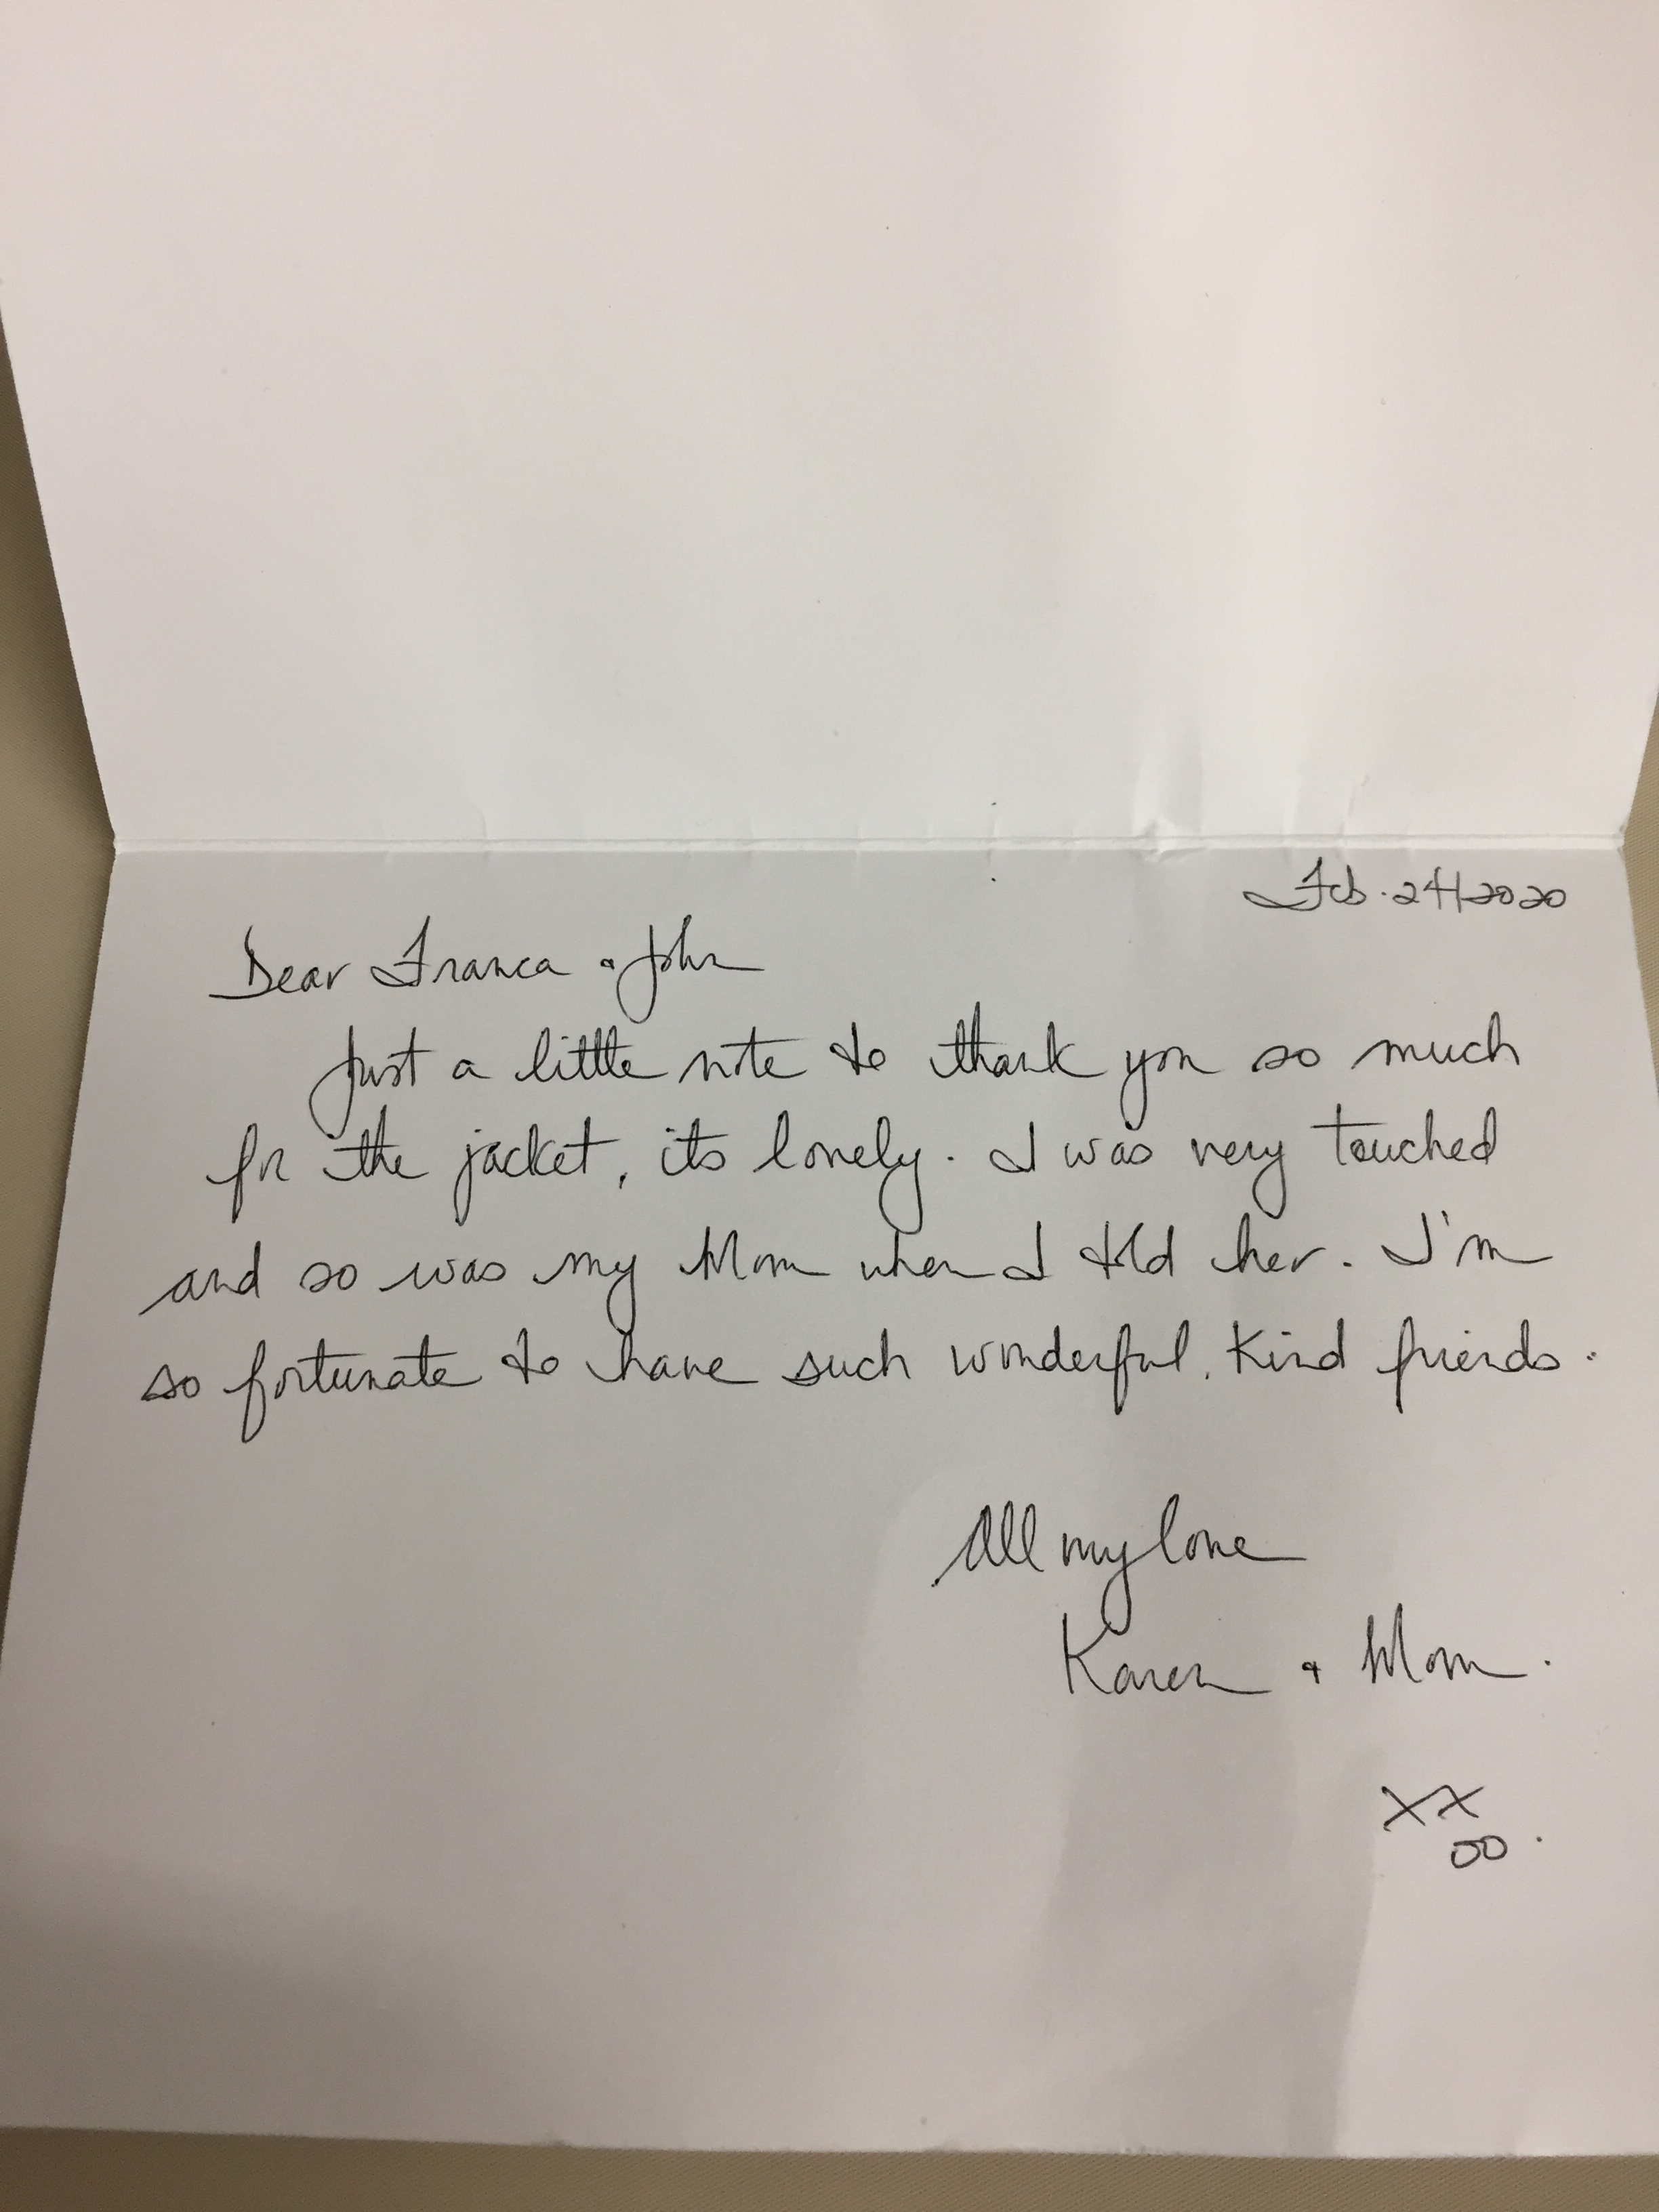 Feb. 24/2020
Dear Franca & John
Just a little note to thank you so much
for the jacket, its lovely. I was very touched
and so was my Mom when I told her. I'm
so fortunate to have such wonderful, kind friends.
All my love
Karen & Mom.
XX
OO.